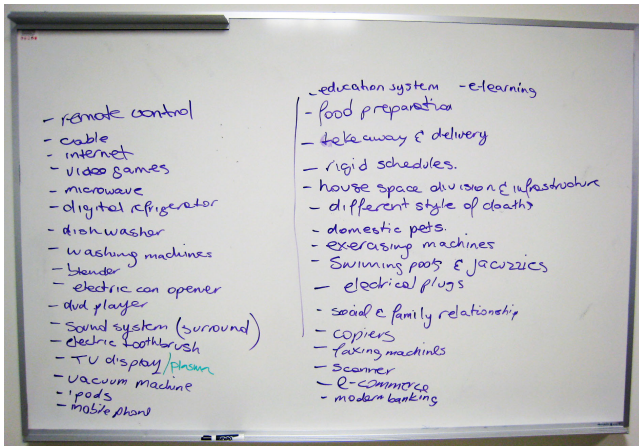 - remote control
- cable
- internet
- video games
- microwave
- digital refrigerator
- dishwasher
- washing machines
- blender
- electric can opener
- dvd player
- sound system (surround)
- electric toothbrush
- TV display/plasm
- vacuum machine
- ipods
- mobile phone
- education system - e-learning
- food preparation
- takeaway & delivery
- rigid schedules.
- house space division & infrastructure
- different style of deaths
- domestic pets.
- exercising machines
- Swimming pools & jacuzzies
- electrical plugs
- social & family relationship
- copiers
- faxing machines
- scanner
- e-commerce
- modern banking